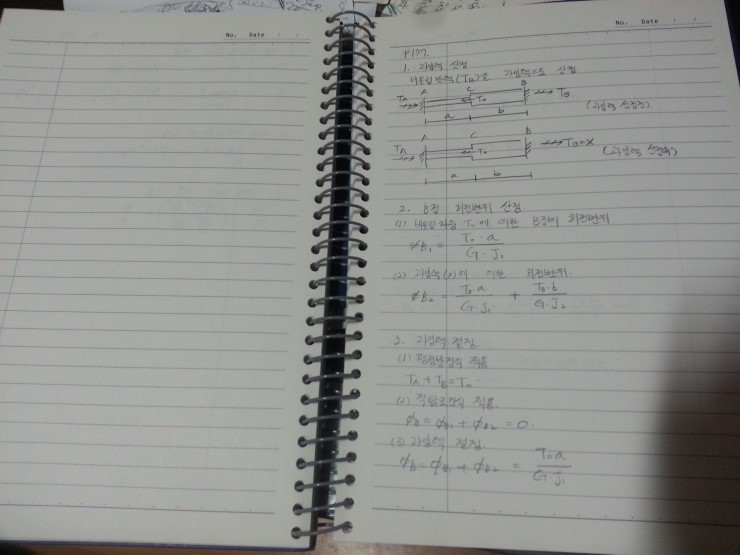 No. Date
No. Date
P177.
1. 과잉력 산정
비틀림 반력(TB)을 과잉력으로 산정
A C B
TA To TB
(과잉력 산정전)
a b
A C B
TA To TB=X
(과잉력 산정후)
a b
2. B점 회전변위 산정
(1) 비틀림 하중 To에 의한 B점의 회전변위
ϕB1 = To·a / G·J1
(2) 과잉력(X)에 의한 회전변위.
ϕB2 = TB·a / G·J1 + TB·b / G·J2
3. 과잉력 결정
(1) 평형방정식 적용
TA + TB = To
(2) 적합조건식 적용.
ϕB = ϕB1 + ϕB2 = 0.
(3) 과잉력 결정.
ϕB = ϕB1 + ϕB2 = To·a / G·J1